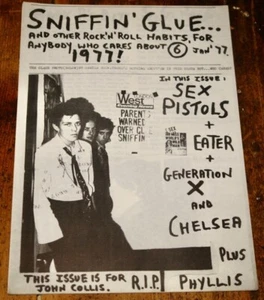 SNIFFIN' GLUE...
AND OTHER ROCK'N'ROLL HABITS, FOR
ANYBODY WHO CARES ABOUT ⑥ JAN '77.
1977!
IN THIS ISSUE:
SEX
PISTOLS
+
EATER
+
GENERATION
X
AND
CHELSEA
PLUS
PHYLLIS
West
PARENT
WARNED
OVER GL
SNIFFIN
THIS ISSUE IS FOR
JOHN COLLIS.
R.I.P.